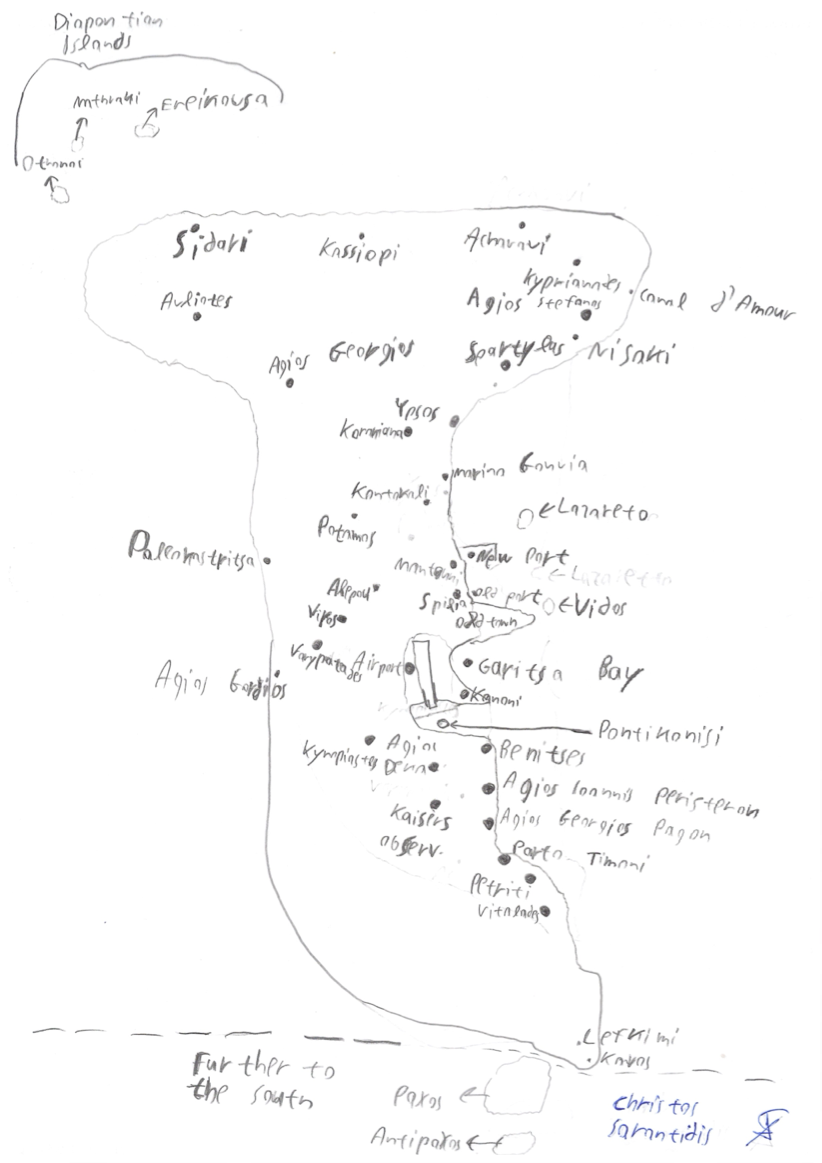 Diapontian
Islands
Mthraki
Ereikousa
Othonoi
Sidari
Kassiopi
Acharavi
Kyprianades
Canal d'Amour
Avliotes
Agios Stefanos
Agios Georgios
Spartylas
Nisaki
Ypsos
Korakiana
Marina Gouvia
Kontokali
Lazareto
Potamos
Paleokastritsa
New Port
Mantouki
Lazaretto
Alepou
Spilia
old port
Vidos
Viros
old town
Varypatades
Airport
Garitsa Bay
Agios Gordios
Kanoni
Pontikonisi
Agioi
Deka
Benitses
Kynopiastes
Agios Ioannis Peristeron
Kaisers
observ.
Agios Georgios Pagon
Porto Timoni
Petriti
Vitalades
Lefkimi
Kavos
Further to
the south
Paxos
Antipaxos
Christos
Sarantidis